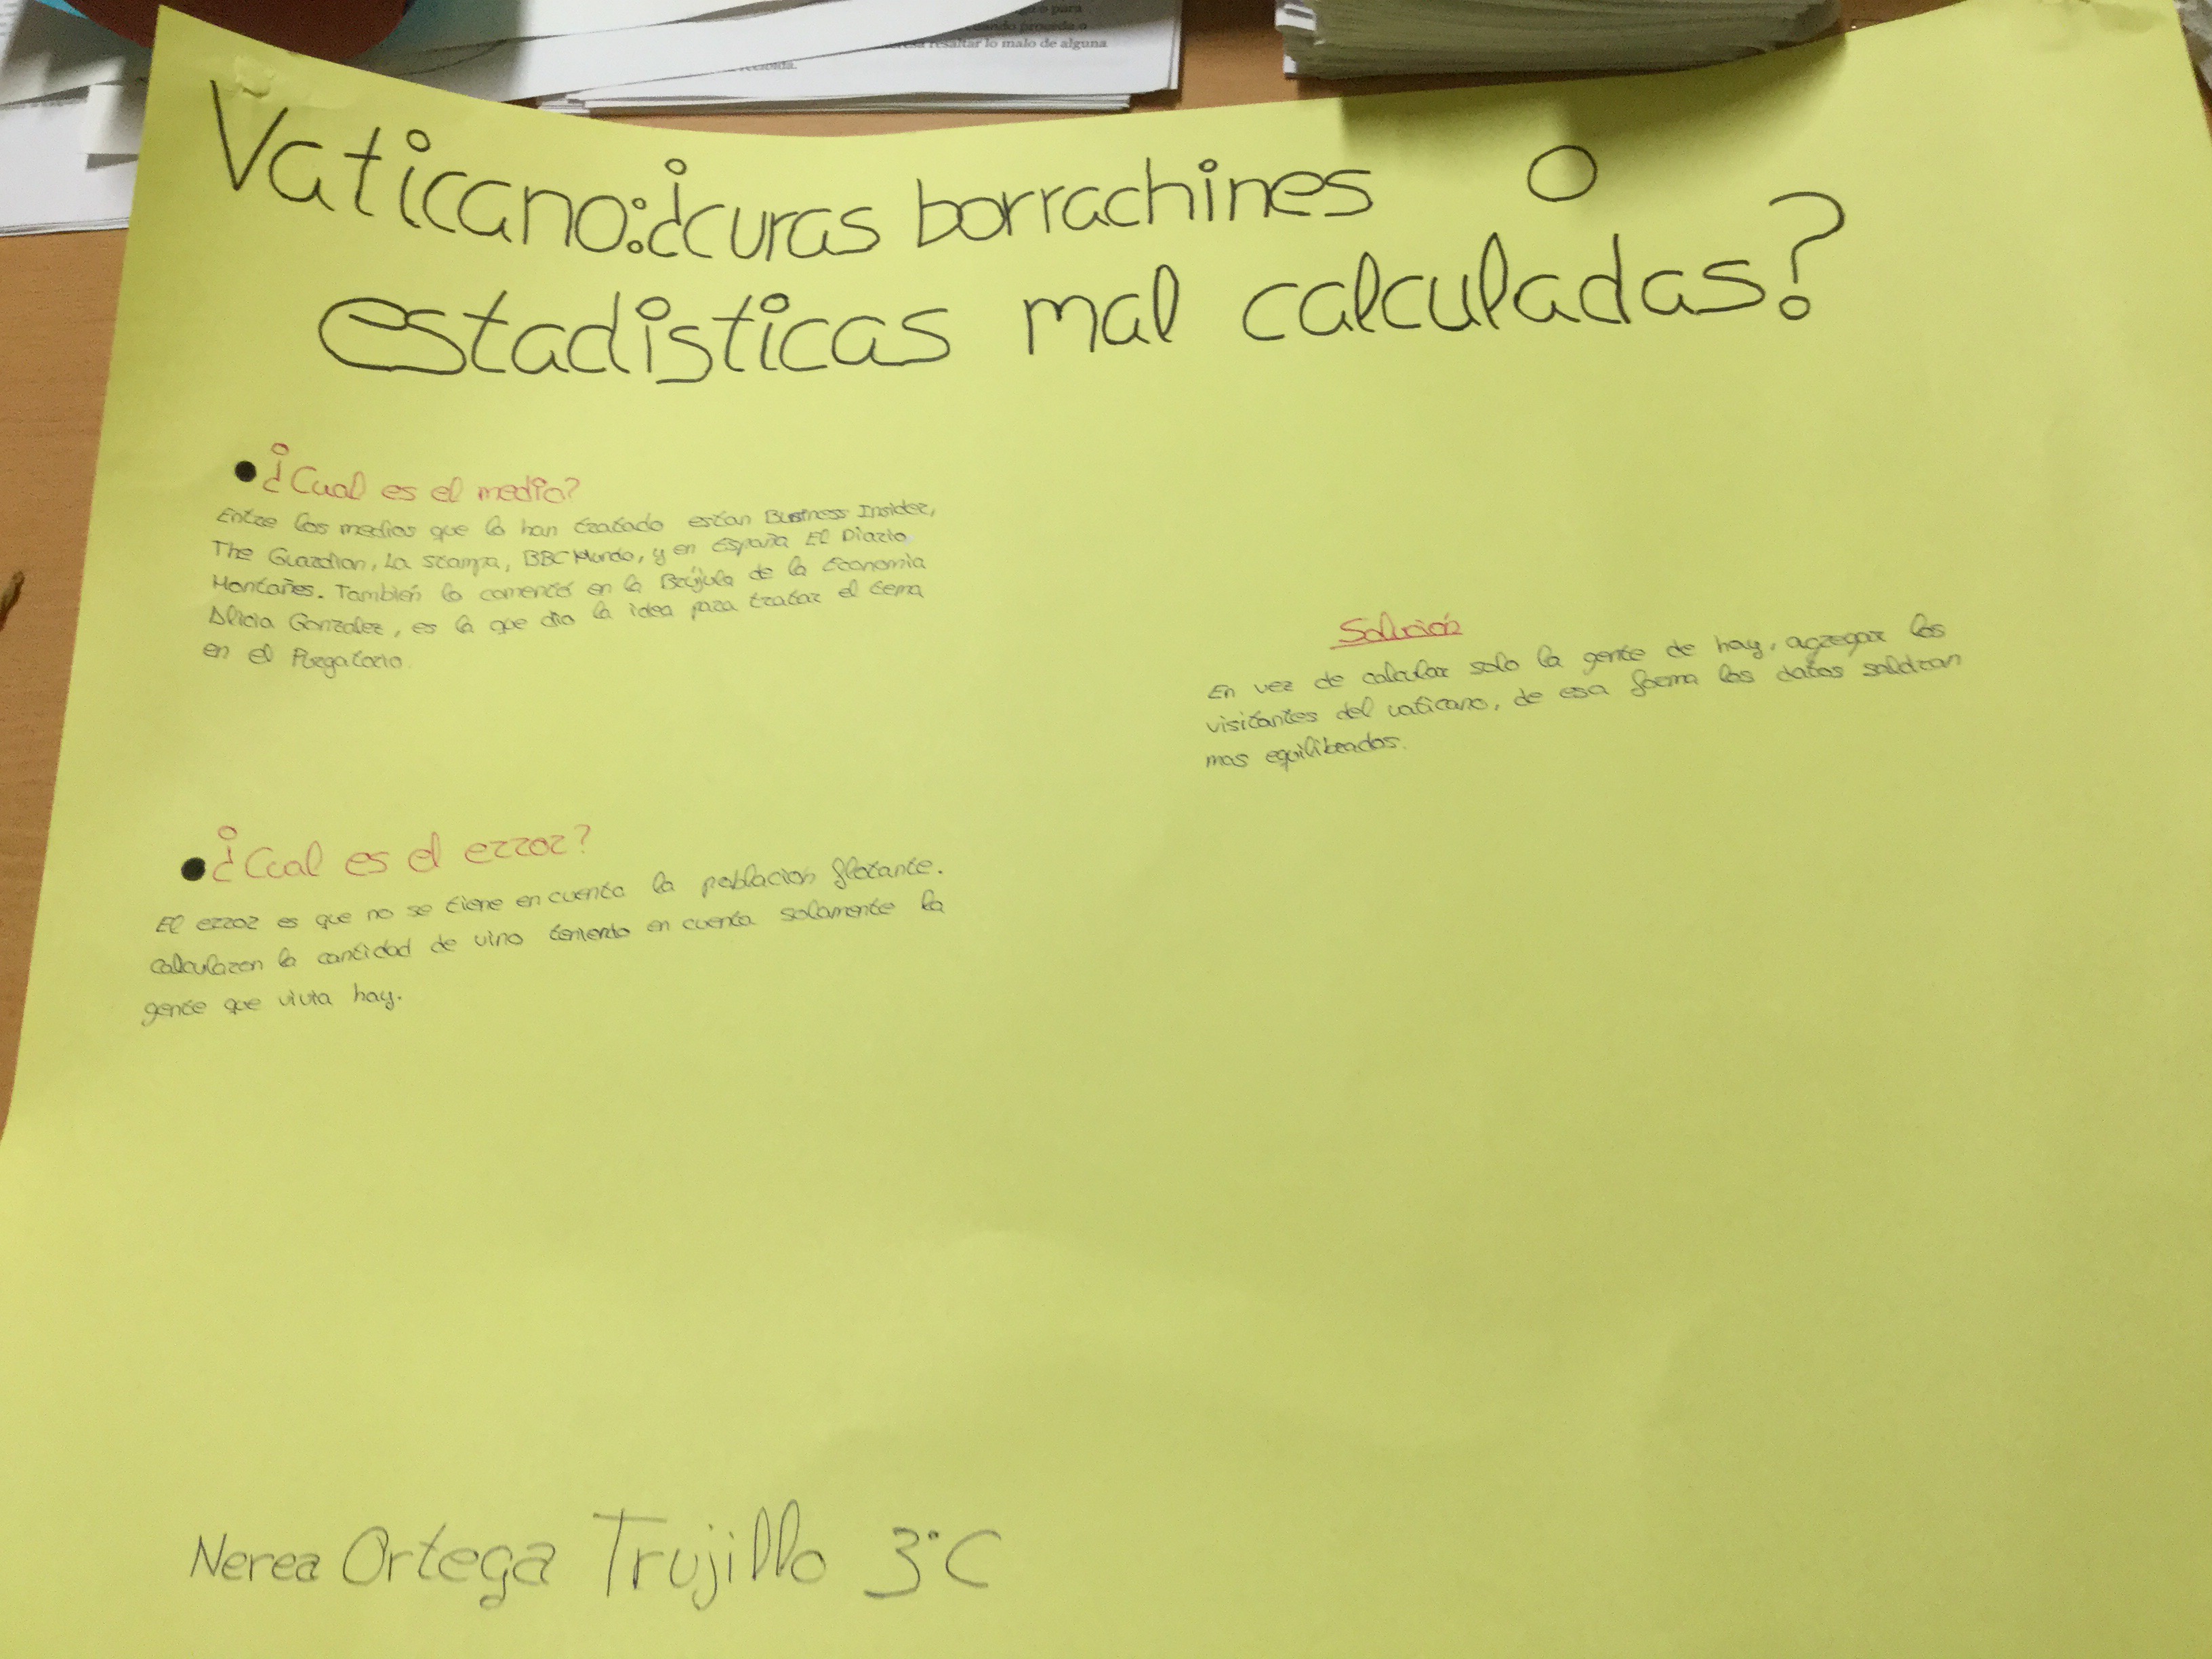 go o para
ando proceda o
resaltar lo malo de alguna
recibida.
Vaticano:¿curas borrachines o
estadisticas mal calculadas?
¿Cual es el medio?
Entre los medios que lo han tratado estan Business Insider,
The Guardian, La Stampa, BBC Mundo, y en España El Diario
Montañes. También lo comentó en la Brújula de la Economia
Alicia Gonzalez, es la que dio la idea para tratar el tema
en el Purgatorio.
Solución
En vez de calcular solo la gente de hay, agregar los
visitantes del vaticano, de esa forma los datos saldran
mas equilibrados.
¿Cual es el error?
El error es que no se tiene en cuenta la población flotante.
Calcularon la cantidad de vino teniendo en cuenta solamente la
gente que vivia hay.
Nerea Ortega Trujillo 3°C